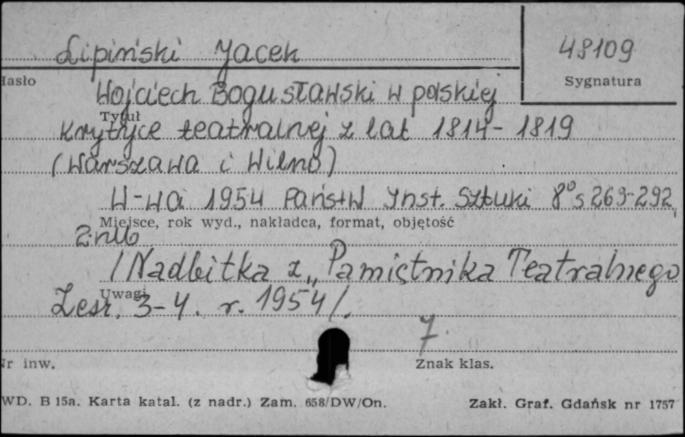 Lipiński Jacek
48109
Hasło
Sygnatura
Wojciech Bogusławski w polskiej
Tytuł
krytyce teatralnej z lat 1814-1819
(Warszawa i Wilno)
W-wa 1954 Państw Inst. Sztuki 8° s 269-292,
Miejsce, rok wyd., nakładca, format, objętość
2 nlb
/Nadbitka z „Pamiętnika Teatralnego
Uwagi
Zesz. 3-4. r. 1954/.
7.
Nr inw.
Znak klas.
WD. B 15a. Karta katal. (z nadr.) Zam. 658/DW/On.
Zakł. Graf. Gdańsk nr 1757